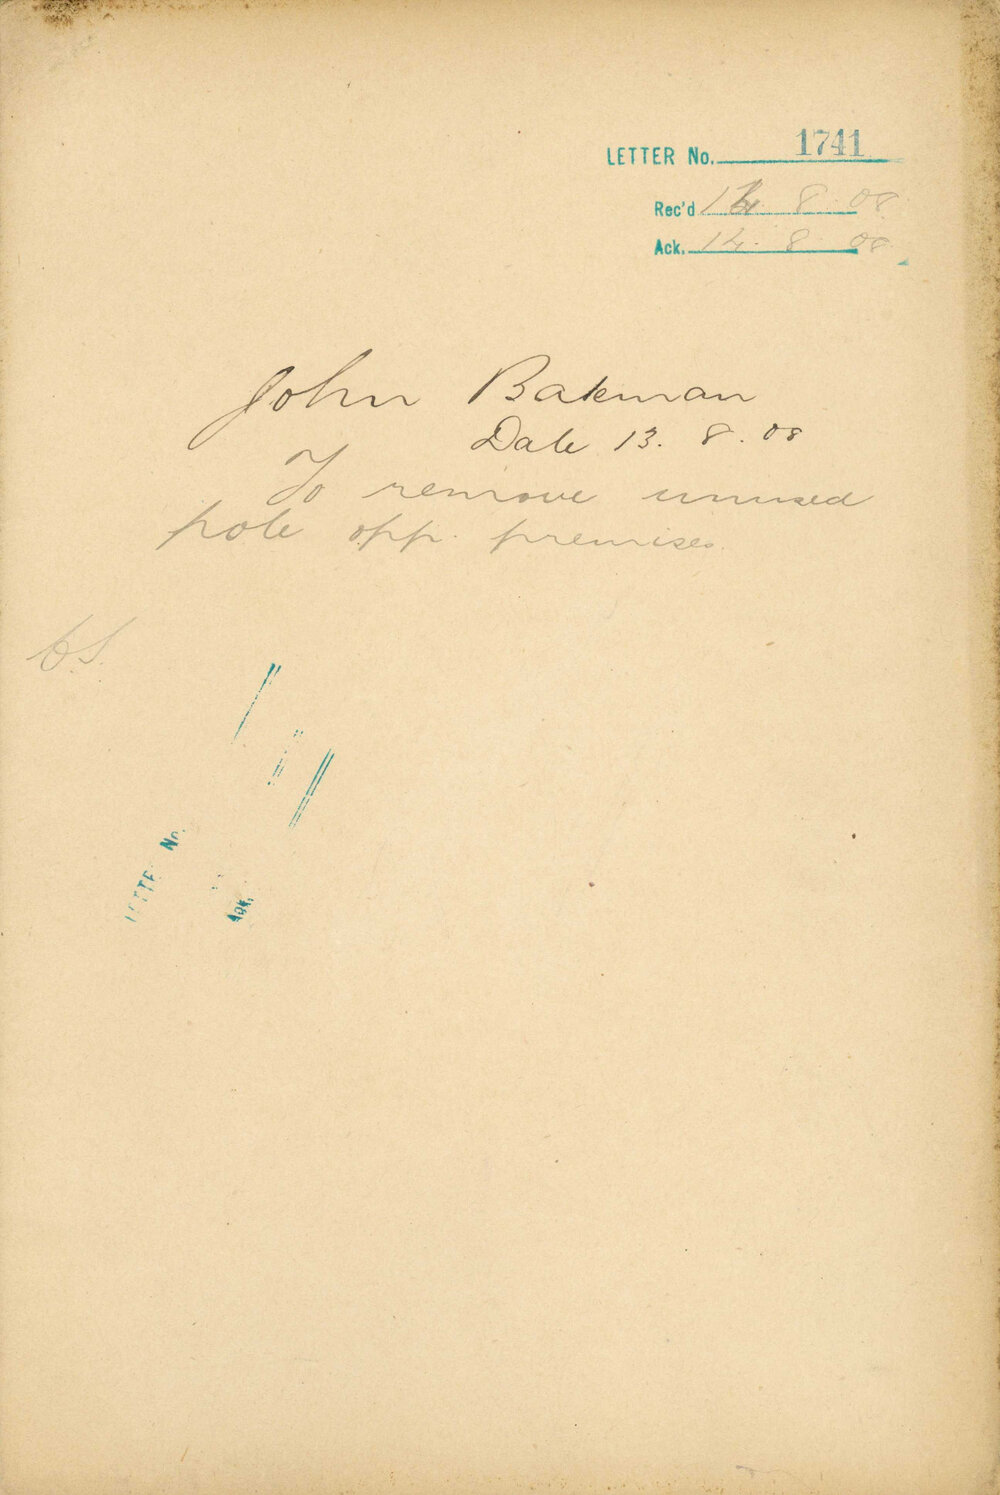 LETTER No. 1741
Rec'd 14. 8. 08
Ack. 14. 8. 08
John Bateman
Date 13. 8. 08
To remove unused
pole opp. premises.
No.
Ack.